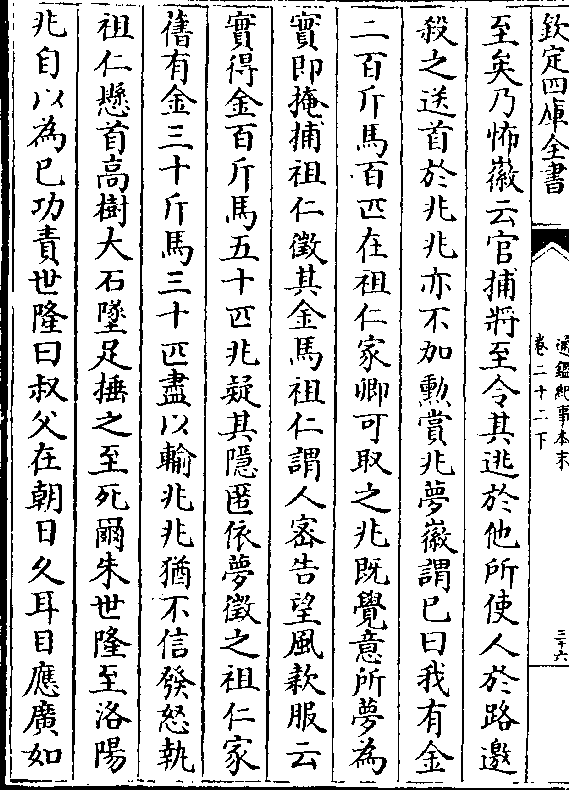 欽定四庫全書
通鑑紀事本末
卷二十二下
三十六
至矣乃怖徽云官捕將至令其逃於他所使人於路邀
殺之送首於兆兆亦不加勲賞兆夢徽謂已曰我有金
二百斤馬百匹在祖仁家卿可取之兆既覺意所夢為
實即掩捕祖仁徵其金馬祖仁謂人宻告望風款服云
實得金百斤馬五十匹兆疑其隱匿依夢徵之祖仁家
舊有金三十斤馬三十匹盡以輸兆兆猶不信發怒執
祖仁懸首高樹大石墜足捶之至死爾朱世隆至洛陽
兆自以為已功責世隆曰叔父在朝日久耳目應廣如